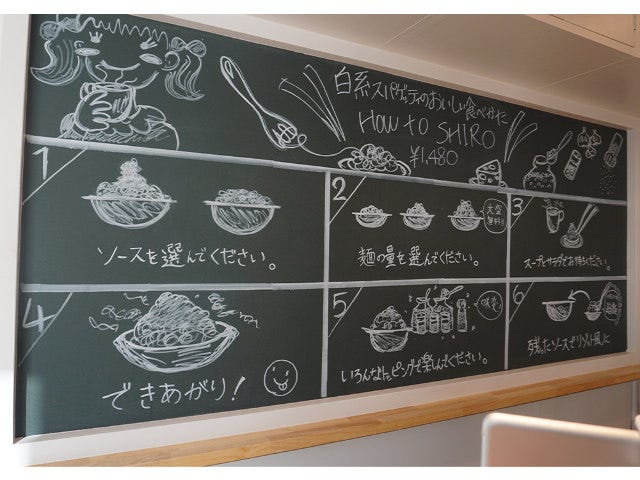 白系スパゲッティのおいしい食べかた
HOW to SHIRO
¥1,480
1
ソースを選んでください。
2
大盛
無料!!
麺の量を選んでください。
3
スープとサラダでお待ちください。
4
できあがり!
5
味変
いろんなトッピングで楽しんでください。
6
残ったソースでリゾット風に